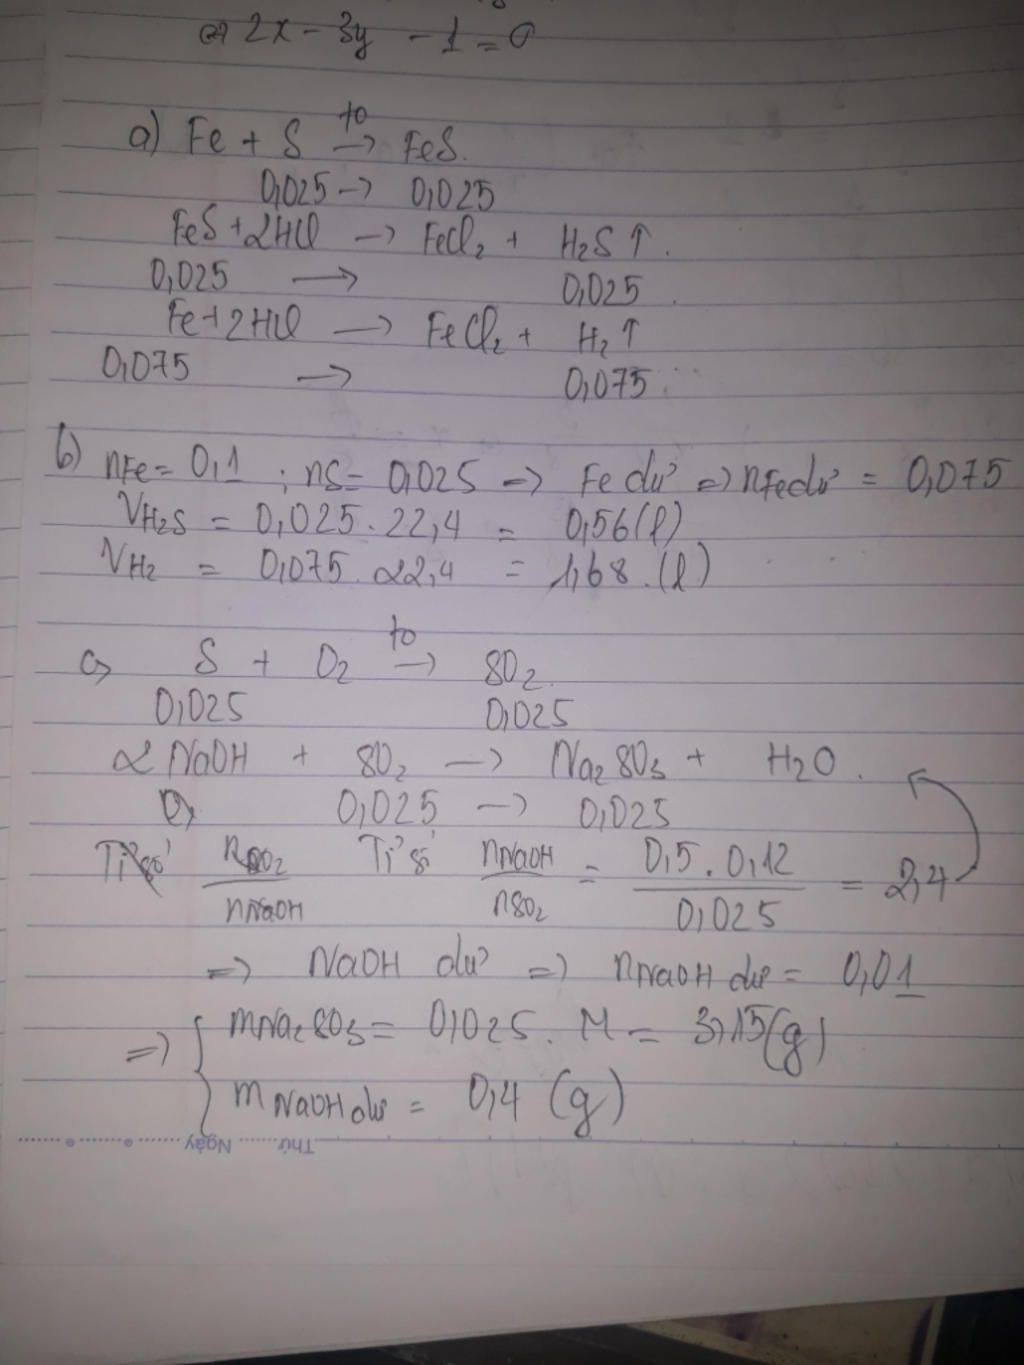 ⇔ 2x - 3y - 1 = 0
a) Fe + S t° → FeS.
0,025 → 0,025
FeS + 2HCl → FeCl2 + H2S ↑.
0,025 → 0,025.
Fe + 2HCl → FeCl2 + H2 ↑
0,075 → 0,075
b) nFe = 0,1 ; nS = 0,025 → Fe dư ⇒ nFe dư = 0,075
VH2S = 0,025 . 22,4 = 0,56 (l)
VH2 = 0,075 . 22,4 = 1,68 . (l)
c) S + O2 t° → SO2.
0,025 0,025
2 NaOH + SO2 → Na2SO3 + H2O.
0, 0,025 → 0,025
Tỉ số nSO2/nNaOH Tỉ số nNaOH/nSO2 = 0,5 . 0,12/0,025 = 2,4
⇒ NaOH dư ⇒ nNaOH dư = 0,01
⇒ { mNa2SO3 = 0,025 . M = 3,15 (g)
mNaOH dư = 0,4 (g)
Thứ ........ Ngày ........